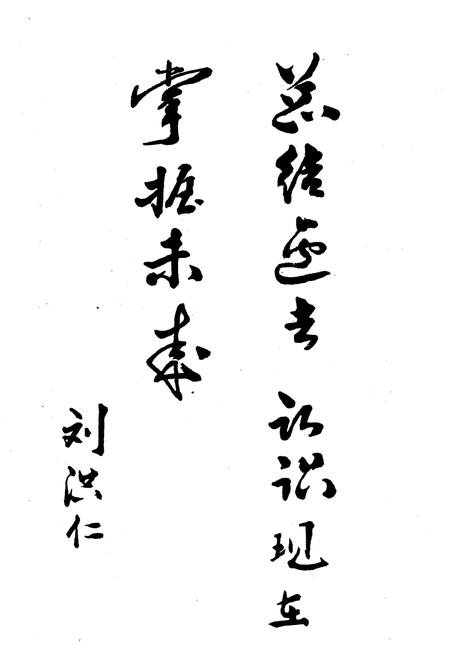 总结过去 认识现在
掌握未来
刘洪仁